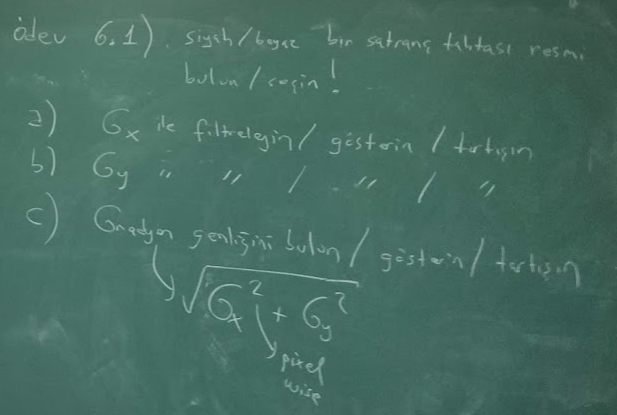 ödev 6.1) siyah/beyaz bir satranç tahtası resmi
bulun / seçin!
a) Gx ile filtreleyin / gösterin / tartışın
b) Gy " " / " / "
c) Gradyan genliğini bulun / gösterin / tartışın
√(Gx² + Gy²)
pixel
wise